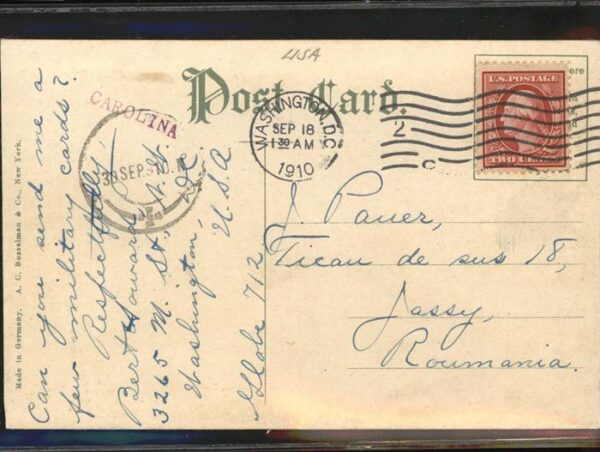 USA
Post Card.
CAROLINA
30 SEP.
WASHINGTON, D.C.
SEP 18
1 30 AM
1910
2
U.S. POSTAGE
TWO CENTS
ere
Can you send me a
few military cards?
Respectfully,
Bert Howard
3265 M. St., N.W.
Washington, D.C.
U.S.A
Globe 712
J. Pauer,
Ticau de sus 18,
Jassy,
Roumania.
Made in Germany. A. C. Bosselman & Co., New York.